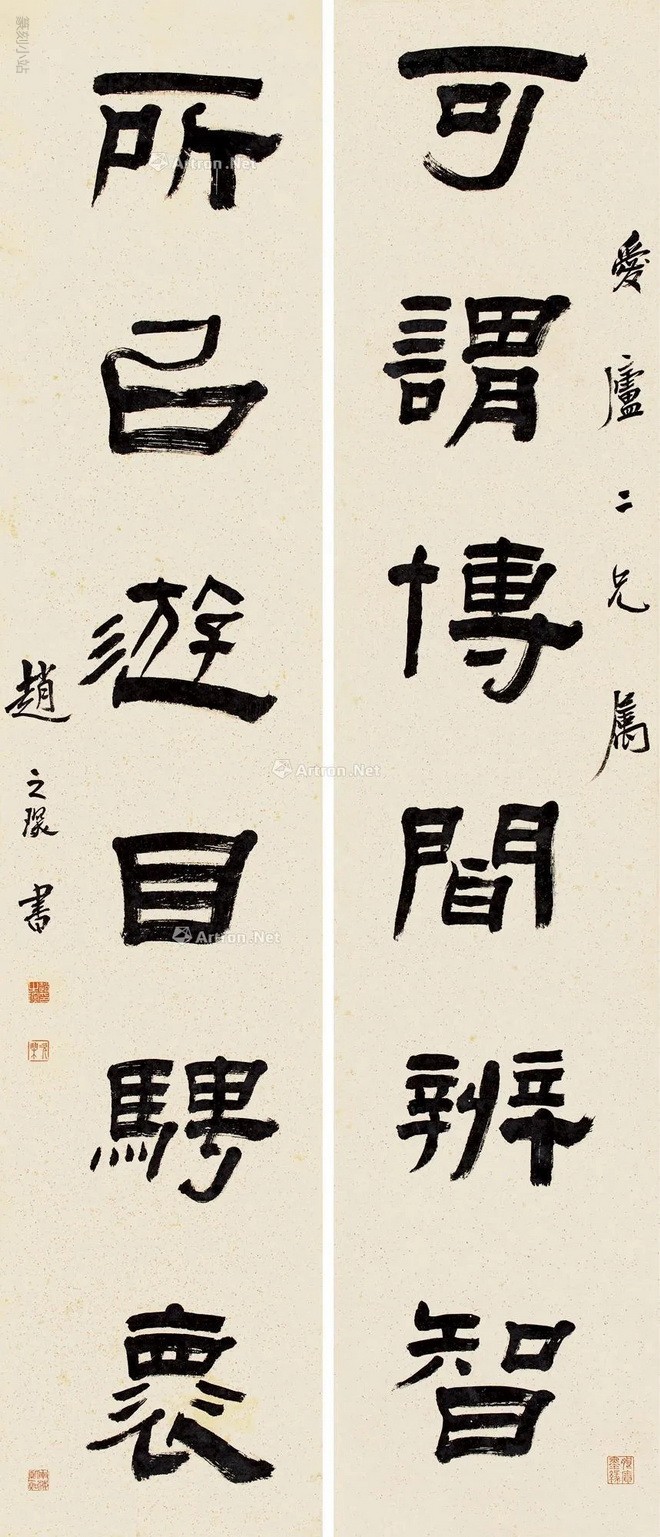 愛廬二兄屬
可謂博聞辨智
所㠯遊目騁褱
趙之琛書
篆刻小站
Artron.Net
Artron.Net
Artron.Net